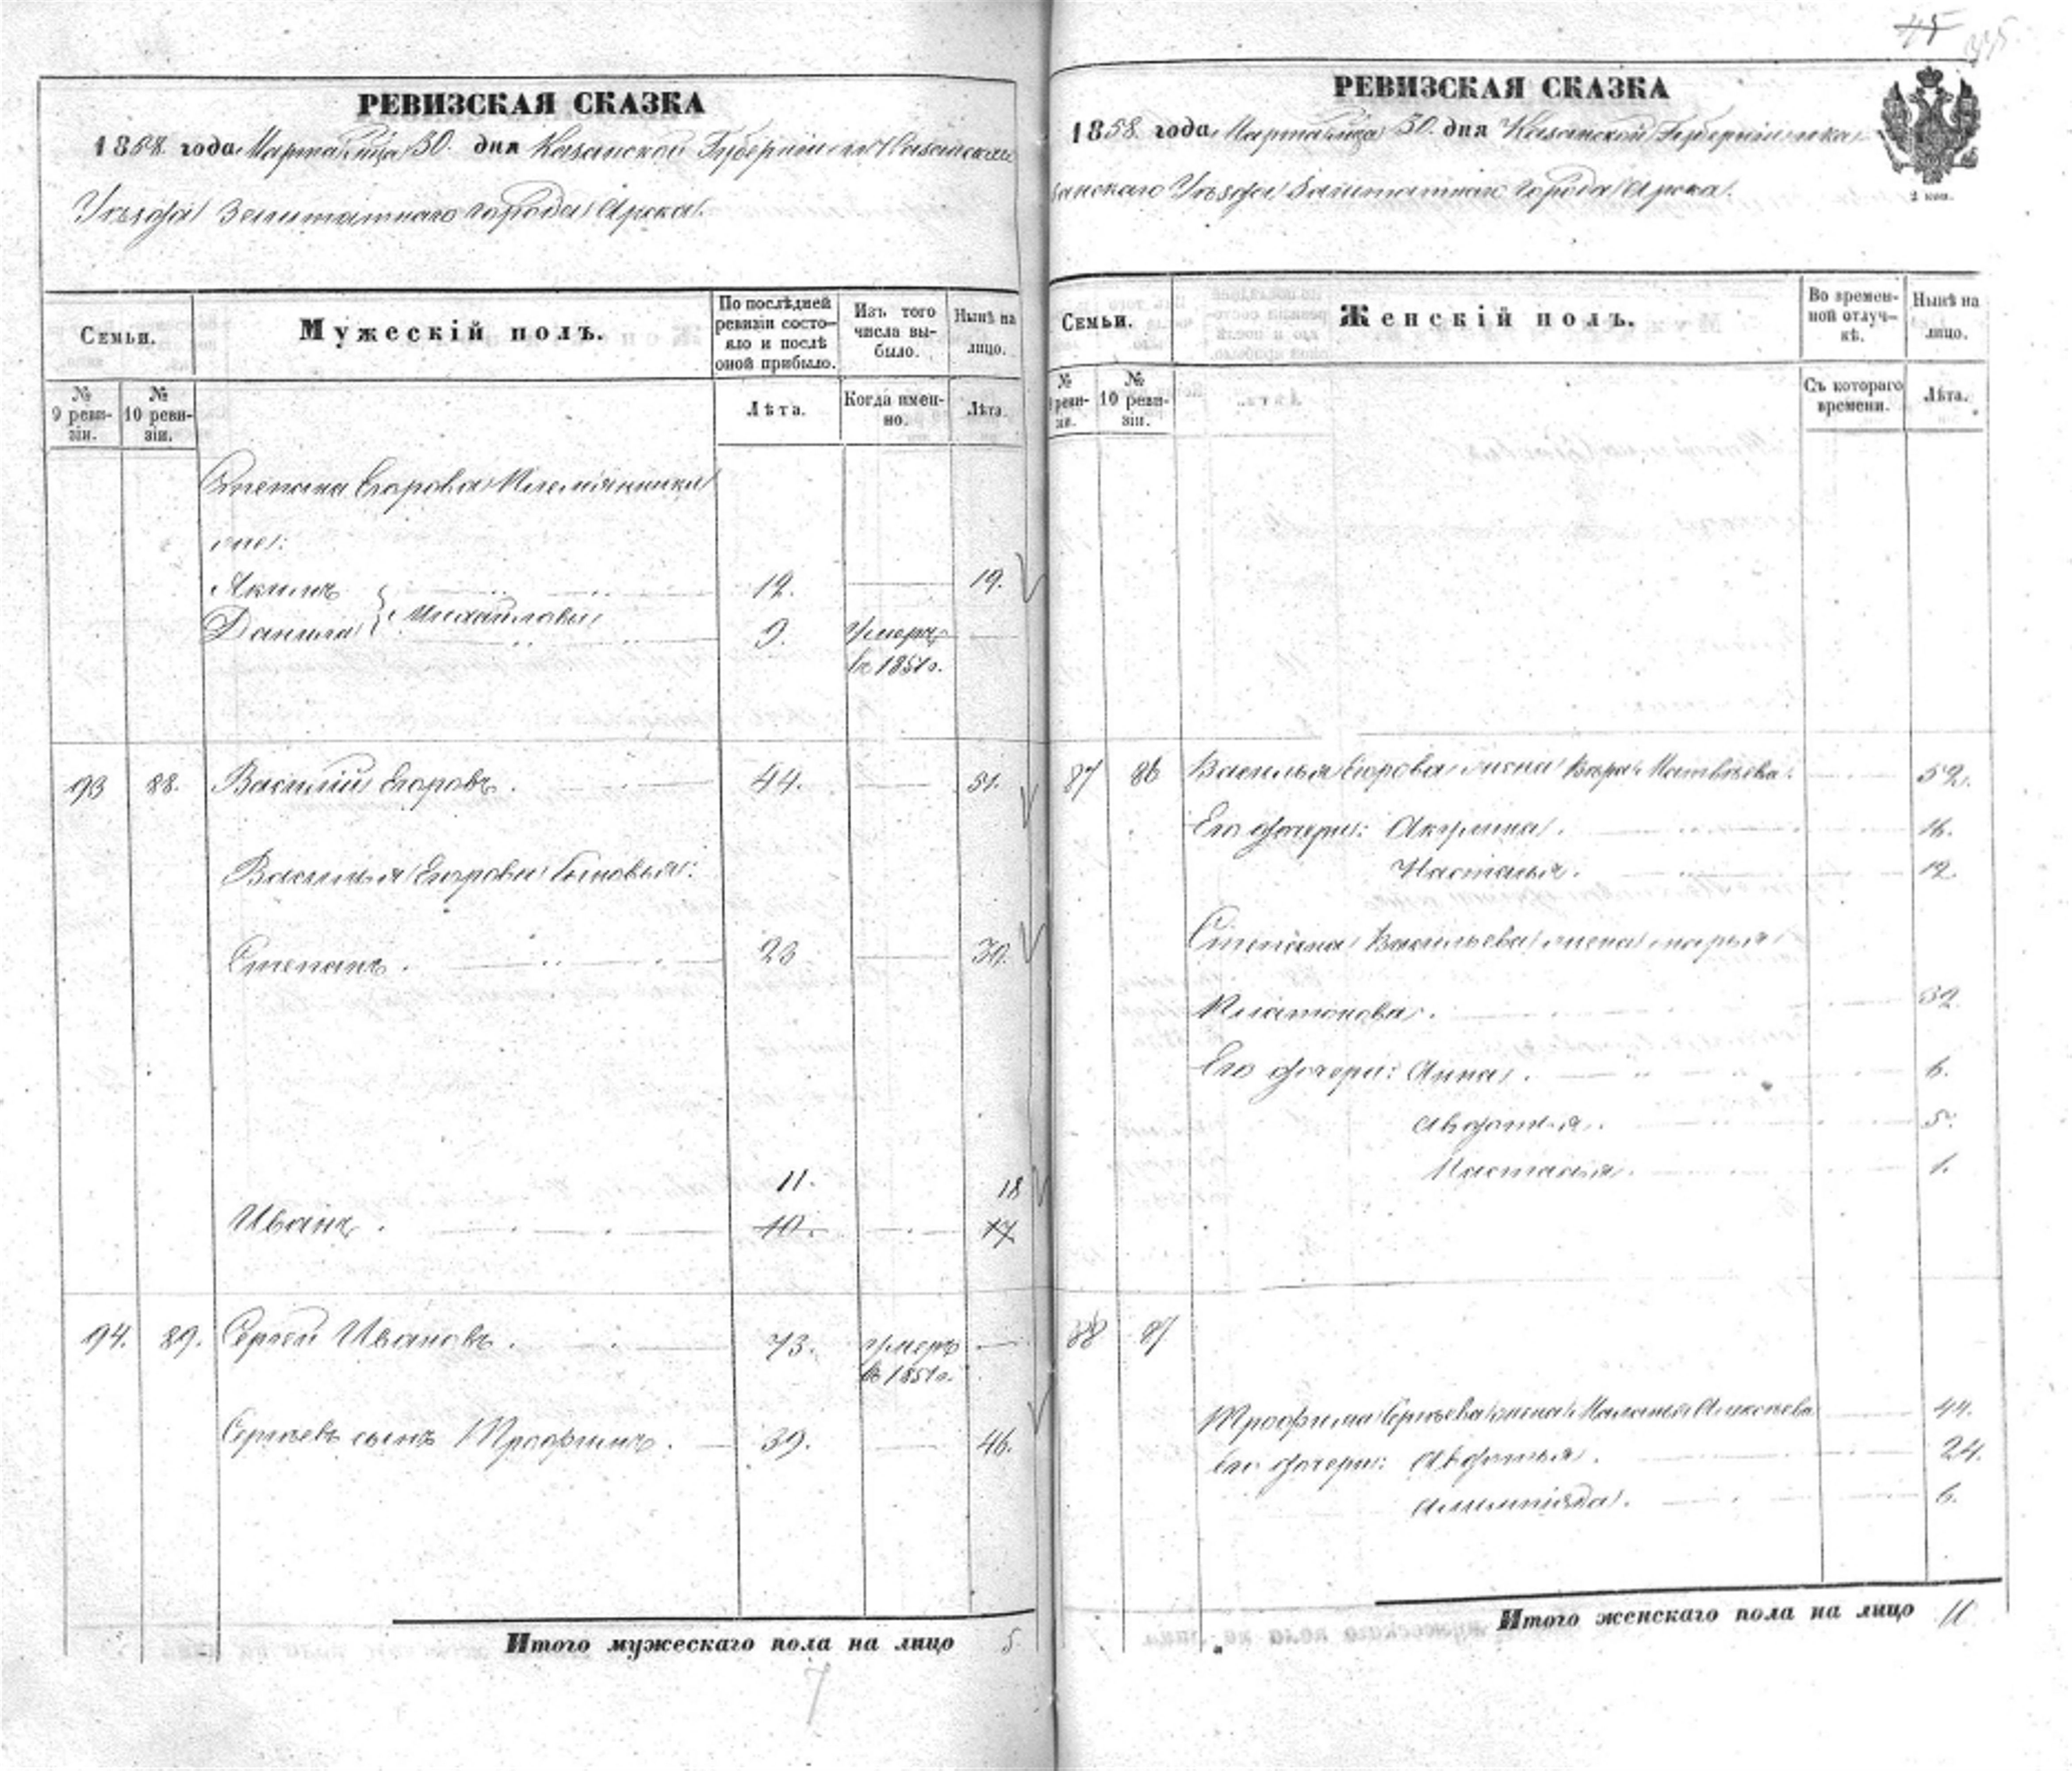 РЕВИЗСКАЯ СКАЗКА
1858. года Марта М-ца 30. дня Казанской Губернии Казанскаго
Уѣзда Заштатнаго города Арска.
Семьи.
Мужескій полъ.
По послѣдней ревизіи состояло и послѣ оной прибыло.
Изъ того числа выбыло.
Нынѣ на лицо.
№ 9 ревизіи.
№ 10 ревизіи.
Лѣта.
Когда именно.
Лѣта.
Степана Егорова Племянники
Акимъ 12. 19.
Михайловы
Данила 9. Умеръ
въ 1851 г.
93 88. Василій Егоровъ. 44. 51.
Василья Егорова Сыновья:
Степанъ. 23 30.
11. 18
Иванъ. 10. 17
94. 89. Сергей Ивановъ. 73. умеръ
въ 1851 г.
Сергѣевъ сынъ Трофимъ. 39. 46.
Итого мужескаго пола на лицо 5.
7
45
РЕВИЗСКАЯ СКАЗКА
1858. года Марта М-ца 30. дня Казанской Губерніи Ка-
занскаго Уѣзда Заштатнаго города Арска.
2 коп.
Семьи.
Женскій полъ.
Во временной отлучкѣ.
Нынѣ на лицо.
№ 9 ревизіи.
№ 10 ревизіи.
Съ котораго времени.
Лѣта.
87 86 Василья Егорова жена Вѣра Матвѣева. 52.
Его дочери: Акулина. 16.
Настасья. 12.
Степана Васильева жена Марья
Платонова. 32.
Его дочери: Анна. 6.
Авдотья. 5.
Настасья. 1.
88 87
Трофима Сергѣева жена Маланья Алексѣева 44.
Его дочери: Авдотья. 24.
Олимпіяда. 6.
Итого женскаго пола на лицо 11